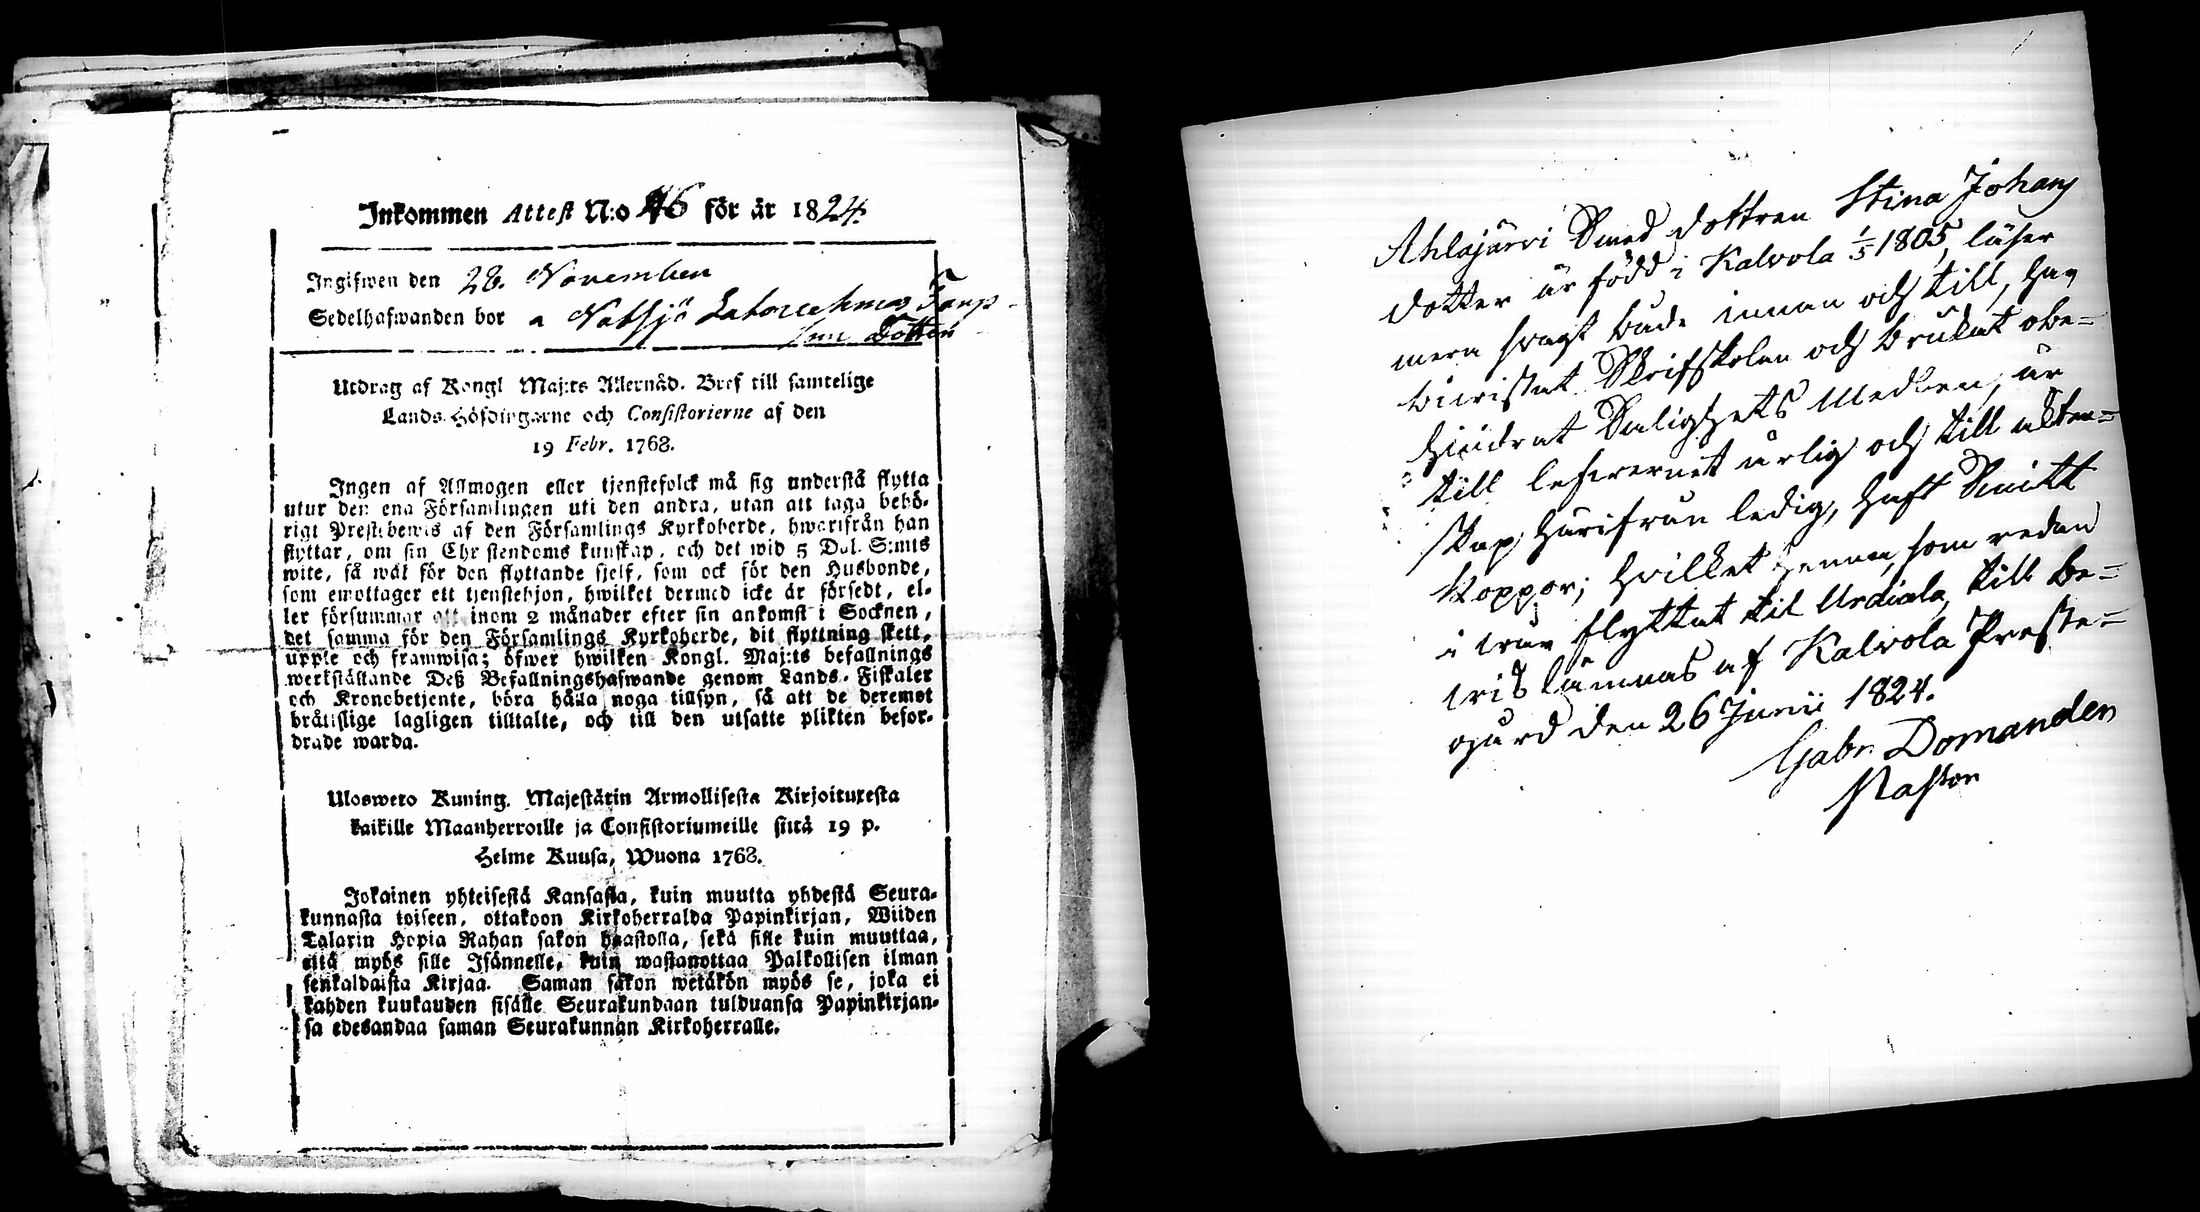 Inkommen Attest N:o 46 för år 1824.
Ingifwen den 28. November
Sedelhafwanden bor a Nutsjö
Dotter
Utdrag af Kongl Maj:ts Allernåd. Bref till samtelige
Lands-Höfdingarne och Consistorierne af den
19 Febr. 1768.
Ingen af Allmogen eller tjenstefolck må sig understå flytta
utur den ena Församlingen uti den andra, utan att taga behö-
rigt Prestebewis af den Församlings Kyrkoherde, hwarifrån han
flyttar, om sin Christendoms kunskap, och det wid 5 Dal. S:mts
wite, så wäl för den flyttande sjelf, som ock för den Husbonde,
som emottager ett tjenstehjon, hwilket dermed icke är försedt, el-
ler försummar att inom 2 månader efter sin ankomst i Socknen,
det samma för den Församlings Kyrkoherde, dit flyttning skett,
uppte och framwisa; öfwer hwilken Kongl. Maj:ts befallnings
werkställande Deß Befallningshafwande genom Lands-Fiskaler
och Kronobetjente, böra hålla noga tillsyn, så att de deremot
bråttslige lagligen tilltalte, och till den utsatte plikten befor-
drade warda.
Ulosweto Kuning. Majestätin Armollisesta Kirjoituxesta
kaikille Maanherroille ja Consistoriumeille siitä 19 p.
Helme Kuusa, Wuona 1768.
Jokainen yhteisestä Kansasta, kuin muutta yhdestä Seura-
kunnasta toiseen, ottakoon Kirkoherralda Papinkirjan, Wiiden
Talarin Hopia Rahan sakon haastolla, sekä sille kuin muuttaa,
että myös sille Isännelle, kuin wastanottaa Palkollisen ilman
senkaldaista Kirjaa. Saman sakon wetäkön myös se, joka ei
kahden kuukauden sisälle Seurakundaan tulduansa Papinkirjan-
sa edesandaa saman Seurakunnan Kirkoherralle.
Ahlajärvi Smed dottren Stina Johans
dotter är född i Kalvola 1/5 1805, läser
mera svagt både innan och till, har
bivistat Skriftskolan och brukat obe-
hindrat Salighets Medlen, är
till lefvernet ärlig och till ekten-
skap härifrån ledig, haft Smitt
koppor; hvilket henne, som redan
i vår flyttat till Urdiala, till be-
vis lämnas af Kalvola Preste-
gård den 26 Junii 1824.
Gabr. Domanden
Pastor